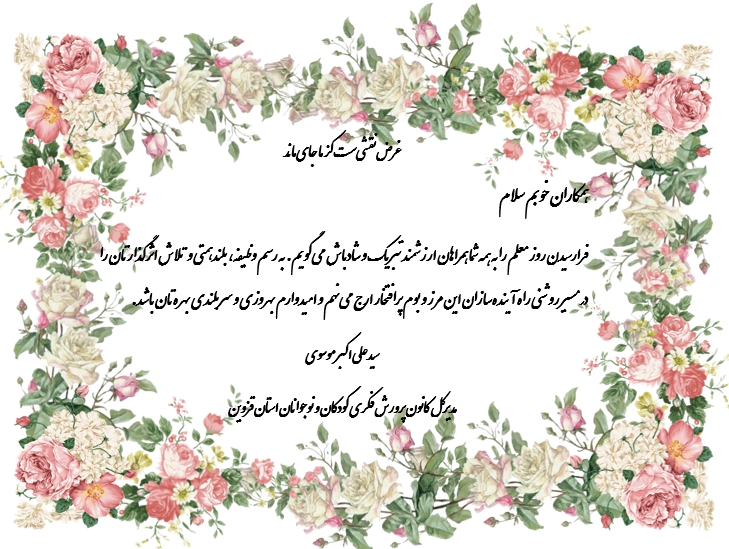 غرض نقشی ست کز ما جای ماند
همکاران خوبم سلام
فرارسیدن روز معلم را به همه شما همراهان ارزشمند تبریک و شادباش می گویم . به رسم وظیفه، بلندهمتی و تلاش اثرگذارتان را
در مسیر روشنی راه آینده سازان این مرز و بوم پرافتخار ارج می نهم و امیدوارم بهروزی و سربلندی بهره تان باشد.
سید علی اکبر موسوی
مدیرکل کانون پرورش فکری کودکان و نوجوانان استان قزوین